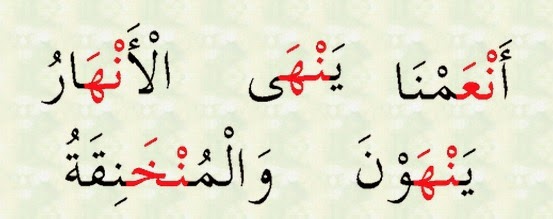 أَنْعَمْنَا يَنْهَى الْأَنْهَارُ
يَنْهَوْنَ وَالْمُنْخَنِقَةُ